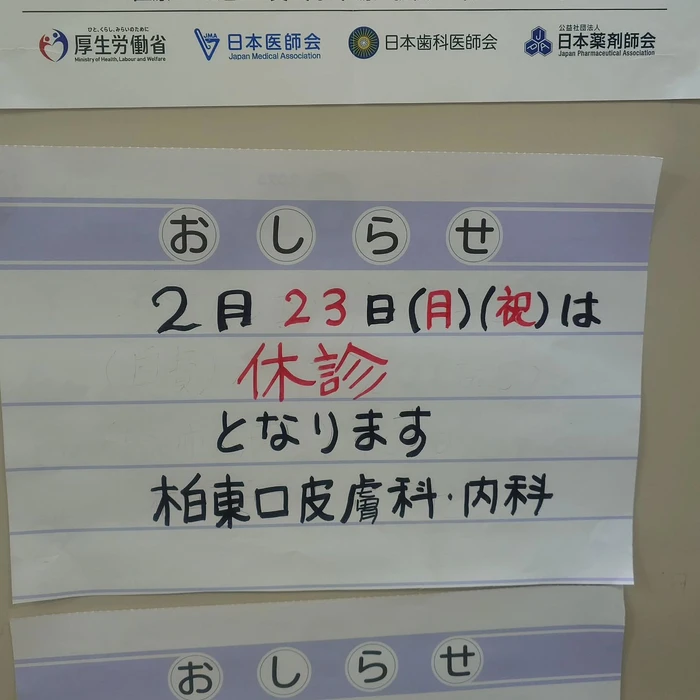 ひと、くらし、みらいのために
厚生労働省
Ministry of Health, Labour and Welfare
日本医師会
Japan Medical Association
日本歯科医師会
公益社団法人
日本薬剤師会
Japan Pharmaceutical Association
おしらせ
2月23日(月)(祝)は
休診
となります
柏東口皮膚科・内科
おしらせ